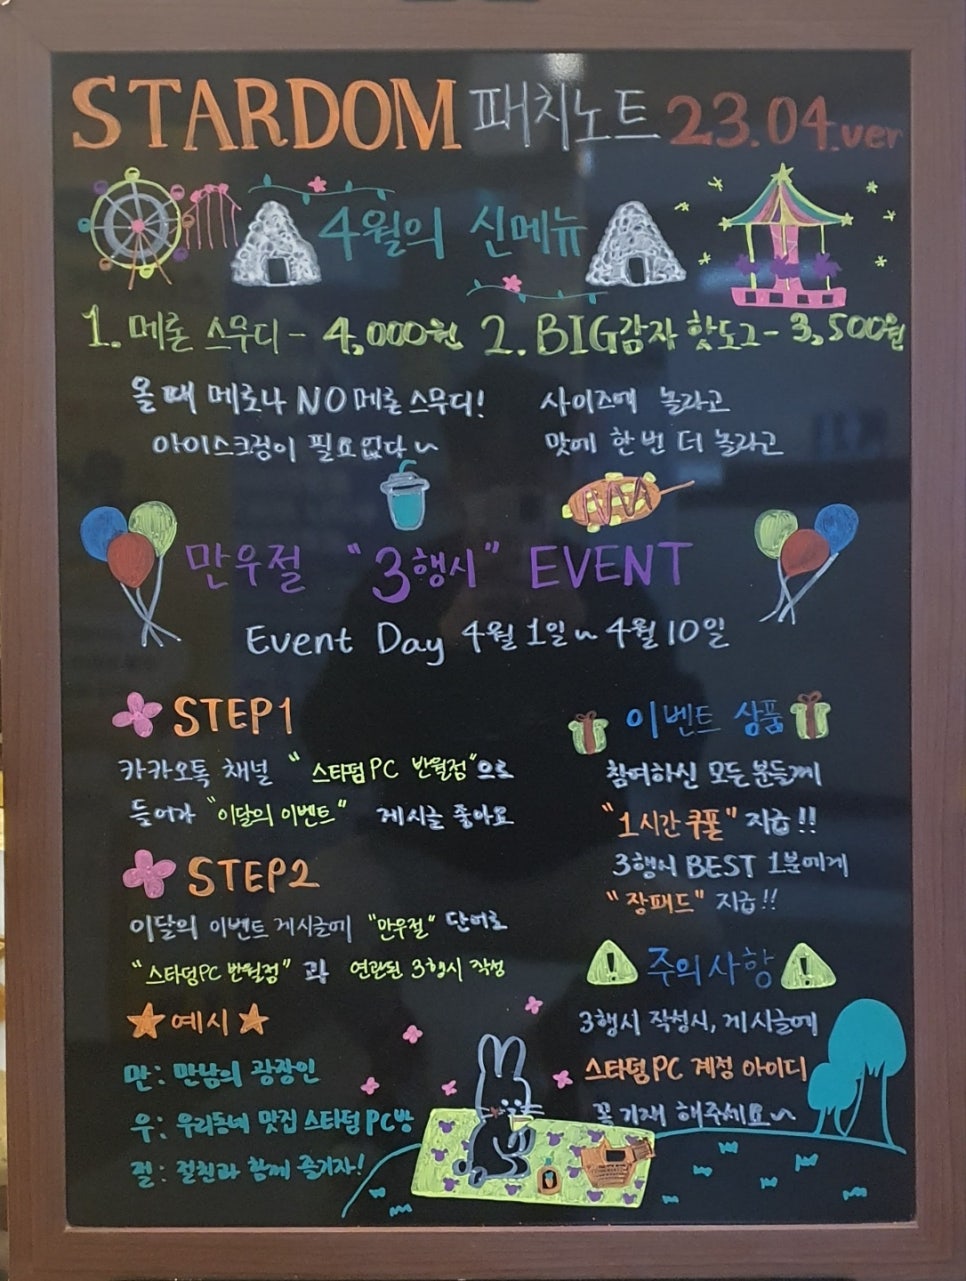 STARDOM 패치노트 23.04.ver
4월의 신메뉴
1. 메론 스무디 - 4,000원
올 때 메로나 NO 메론스무디!
아이스크림이 필요없다~
2. BIG감자 핫도그 - 3,500원
사이즈에 놀라고
맛에 한번 더 놀라고
만우절 "3행시" EVENT
Event Day 4월 1일~4월 10일
STEP1
카카오톡 채널 "스타덤PC 반월점"으로
들어가 "이달의 이벤트" 게시글 좋아요
STEP2
이달의 이벤트 게시글에 "만우절" 단어로
"스타덤PC 반월점" 과 연관된 3행시 작성
예시
만: 만남의 광장인
우: 우리동네 맛집 스타덤PC방
절: 절친과 함께 즐기자!
이벤트 상품
참여하신 모든분들께
"1시간 쿠폰" 지급!!
3행시 BEST 1분에게
"장패드" 지급!!
주의사항
3행시 작성시, 게시글에
스타덤PC 계정 아이디
꼭 기재 해주세요~